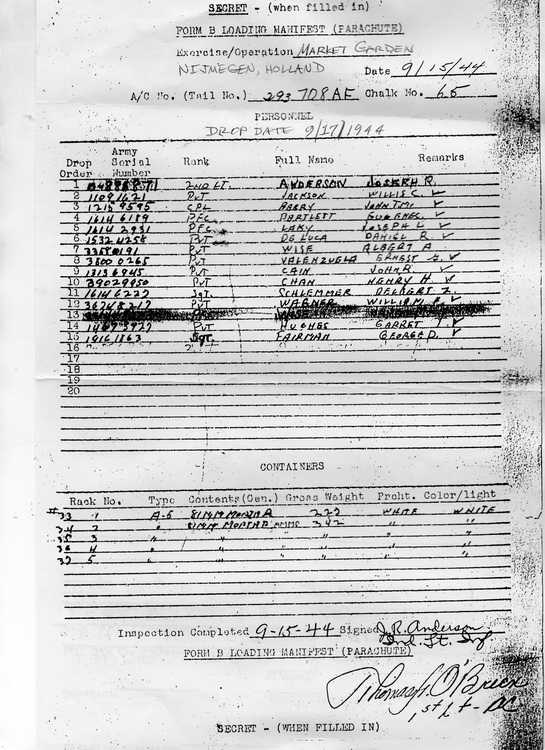 SECRET - (when filled in)
FORM B LOADING MANIFEST (PARACHUTE)
Exercise/Operation MARKET GARDEN
NIJMEGEN, HOLLAND Date 9/15/44
A/C No. (Tail No.) 293 708AE Chalk No. 65
PERSONNEL
DROP DATE 9/17/1944
Drop Order Army Serial Number Rank Full Name Remarks
1 2ND LT. ANDERSON JOSEPH R.
2 11091621 PVT JACKSON WILLIS C. ✓
3 CPL ABRY JOHN ✓
4 1614 6189 PFC BARTLETT ✓
5 1614 2931 PFC LAKY JOSEPH L ✓
6 1532 4258 PVT DE LUCA DANIEL R ✓
7 33580191 PVT WISE ALBERT A
8 3800 0265 PVT VALENZUELA ERNEST G. ✓
9 1313 6945 PVT CAIN JOHN R. ✓
10 39029950 PVT CHAN HENRY H ✓
11 1614 6222 SGT. SCHLEMMER DELBERT Z.
12 PVT WAGNER WILLIAM ✓
13
14 PVT HUGHES GARRET J. ✓
15 1916 1863 SGT. FAIRMAN GEORGE D. ✓
16
17
18
19
20
CONTAINERS
Rack No. Type Contents(Gen.) Gross Weight Prcht. Color/light
#33 1 A-5 81MM MORTAR 222 WHITE WHITE
34 2 " 81MM MORTAR AMMO 342 " "
35 3 " " " " "
36 4 " " " " "
37 5 " " " " "
Inspection Completed 9-15-44 Signed J. R. Anderson
2nd. Lt. Inf
FORM B LOADING MANIFEST (PARACHUTE)
Thomas J. O'Brien
1st Lt - AC
SECRET - (WHEN FILLED IN)